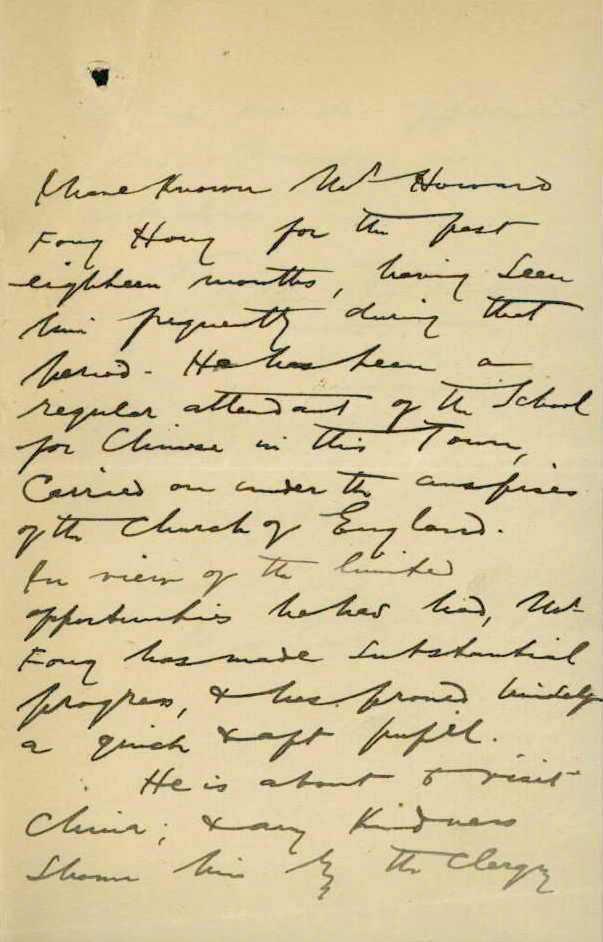 I have known Mr Howard
Fong Hong for the past
eighteen months, having seen
him frequently during that
period. He has been a
regular attendant of the School
for Chinese in this Town,
Carried on under the auspices
of the Church of England.
In view of the limited
opportunities he has had, Mr
Fong has made substantial
progress, & has proved himself
a quick & apt pupil.
He is about to visit
China; & any Kindness
Shown him by the Clergy